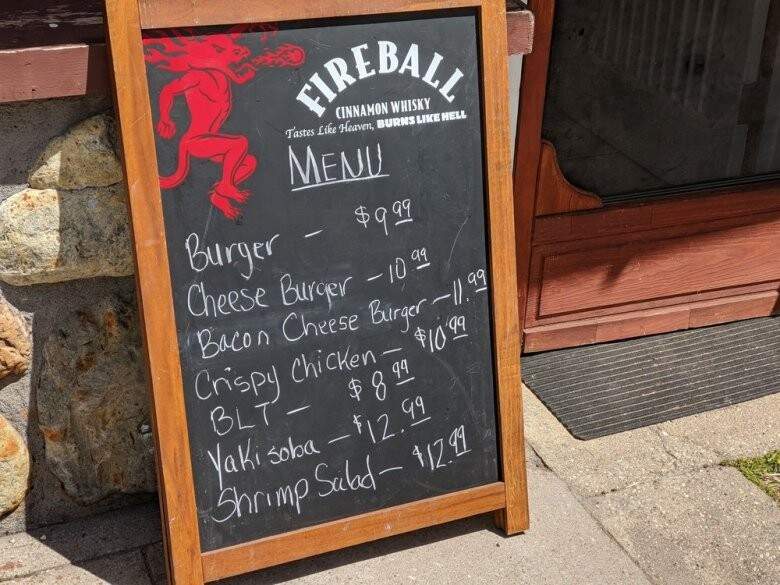 FIREBALL
CINNAMON WHISKY
Tastes Like Heaven, BURNS LIKE HELL
MENU
Burger - $9.99
Cheese Burger - 10.99
Bacon Cheese Burger - 11.99
Crispy Chicken - $10.99
BLT - $8.99
Yakisoba - $12.99
Shrimp Salad - $12.99